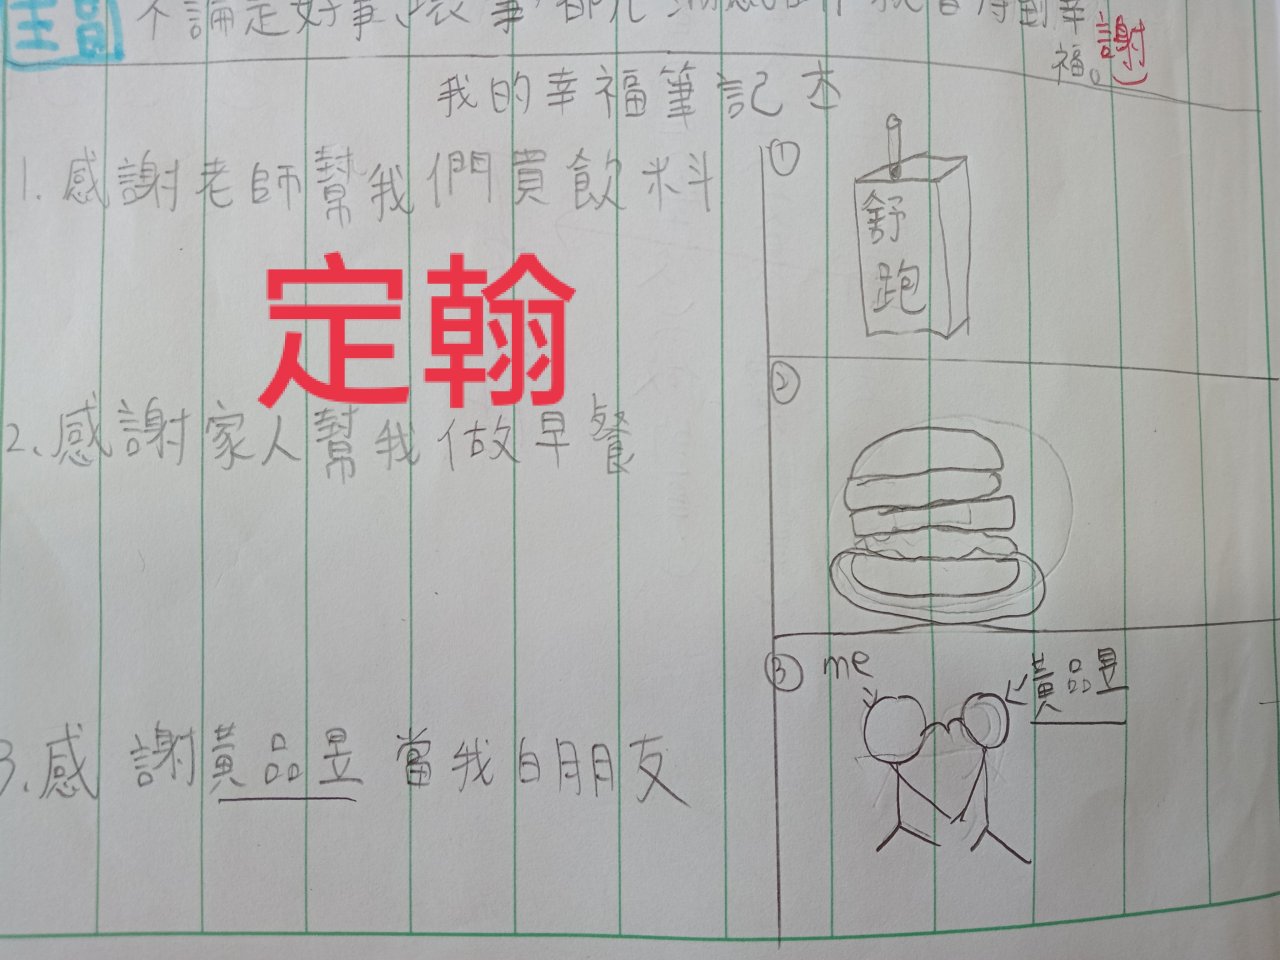 主旨
不論是好事、壞事，都充滿感謝，就會得到幸
福。
謝
我的幸福筆記本
1.感謝老師幫我們買飲料
①
舒跑
定翰
2、感謝家人幫我做早餐
②
3、感謝黃品昱當我白朋友
③ me
黃品昱